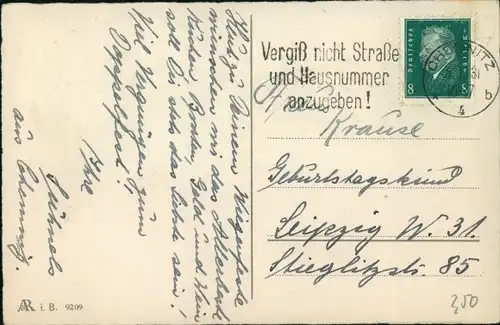 Vergiß nicht Straße
und Hausnummer
anzugeben!
CHEMNITZ
31
b
4
Deutsches Reich
8 8
Krause
Geburtstagskind
Leipzig W. 31.
Stieglitzstr. 85
Heut zu Deinem Wiegenfeste
wünschen wir das Allerbeste
Kuchen, Braten, Geld und Wein
soll Dir stets das Liebste sein!
Viel Vergnügen zum
Doppelfest!
Ihre
aus Chemnitz.
AR i. B. 9209
2,50